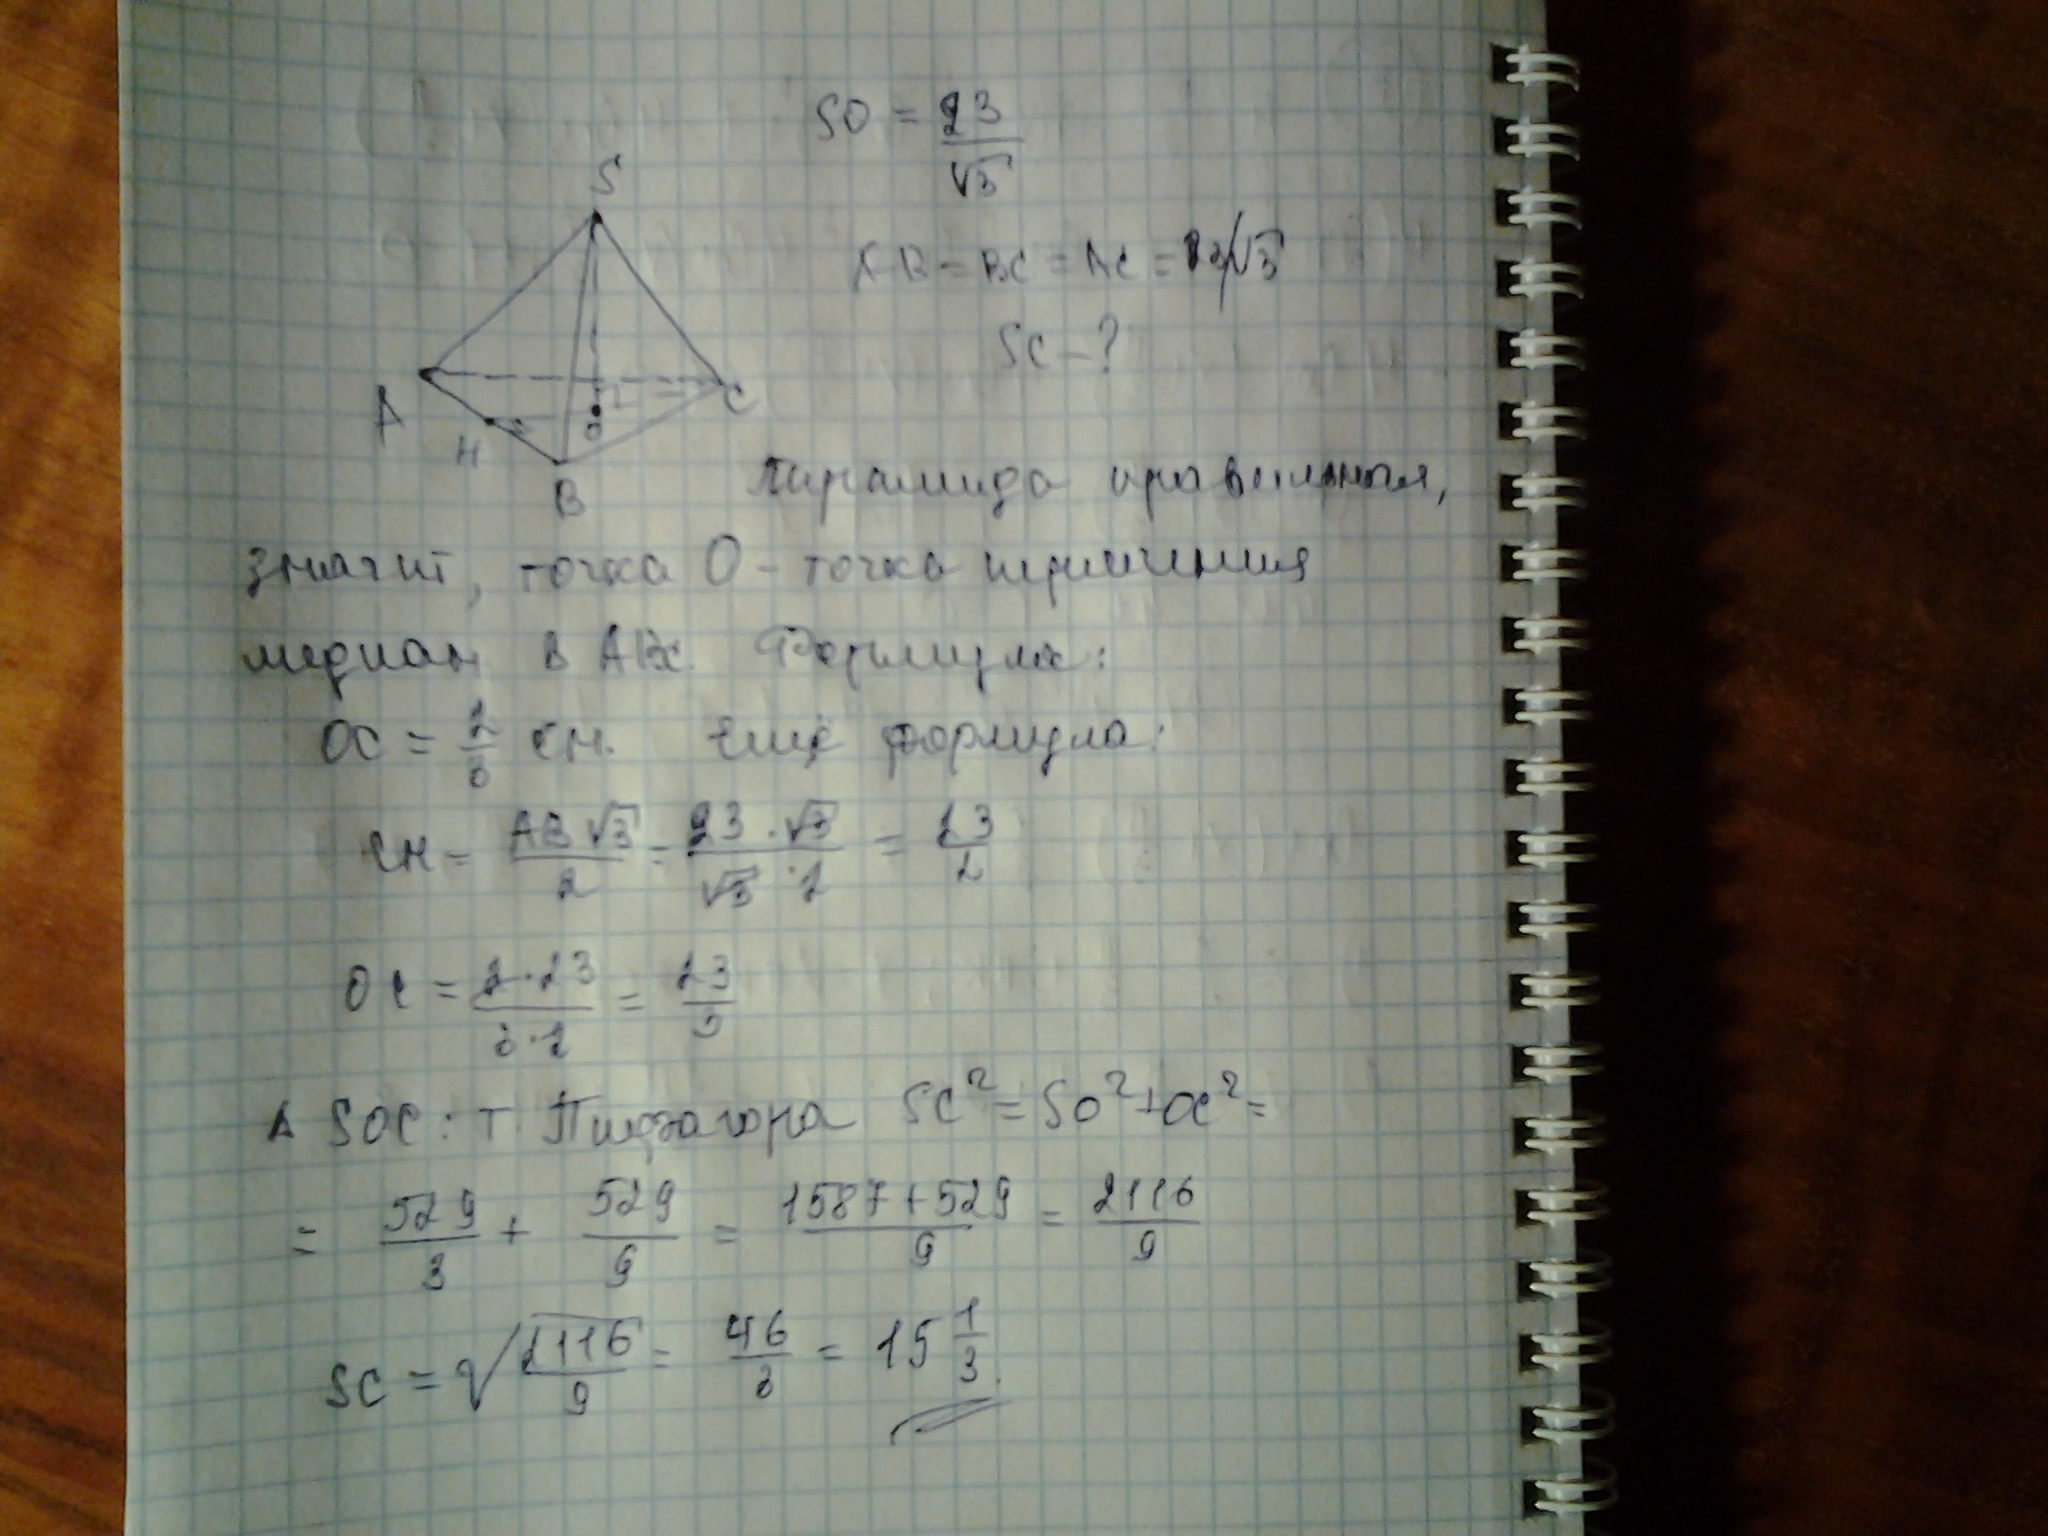 SO = 23/√3
S
AB = BC = AC = 23/√3
SC - ?
A
C
H
O
B
Пирамида правильная,
значит, точка O - точка пересечения
медиан в ABC. Формула:
OC = 2/3 CH. Ещё формула:
CH = AB√3/2 = 23·√3/√3·2 = 23/2
OC = 2·23/3·2 = 23/3
Δ SOC: т. Пифагора SC² = SO² + OC² =
= 529/3 + 529/9 = 1587+529/9 = 2116/9
SC = √2116/9 = 46/3 = 15 1/3.